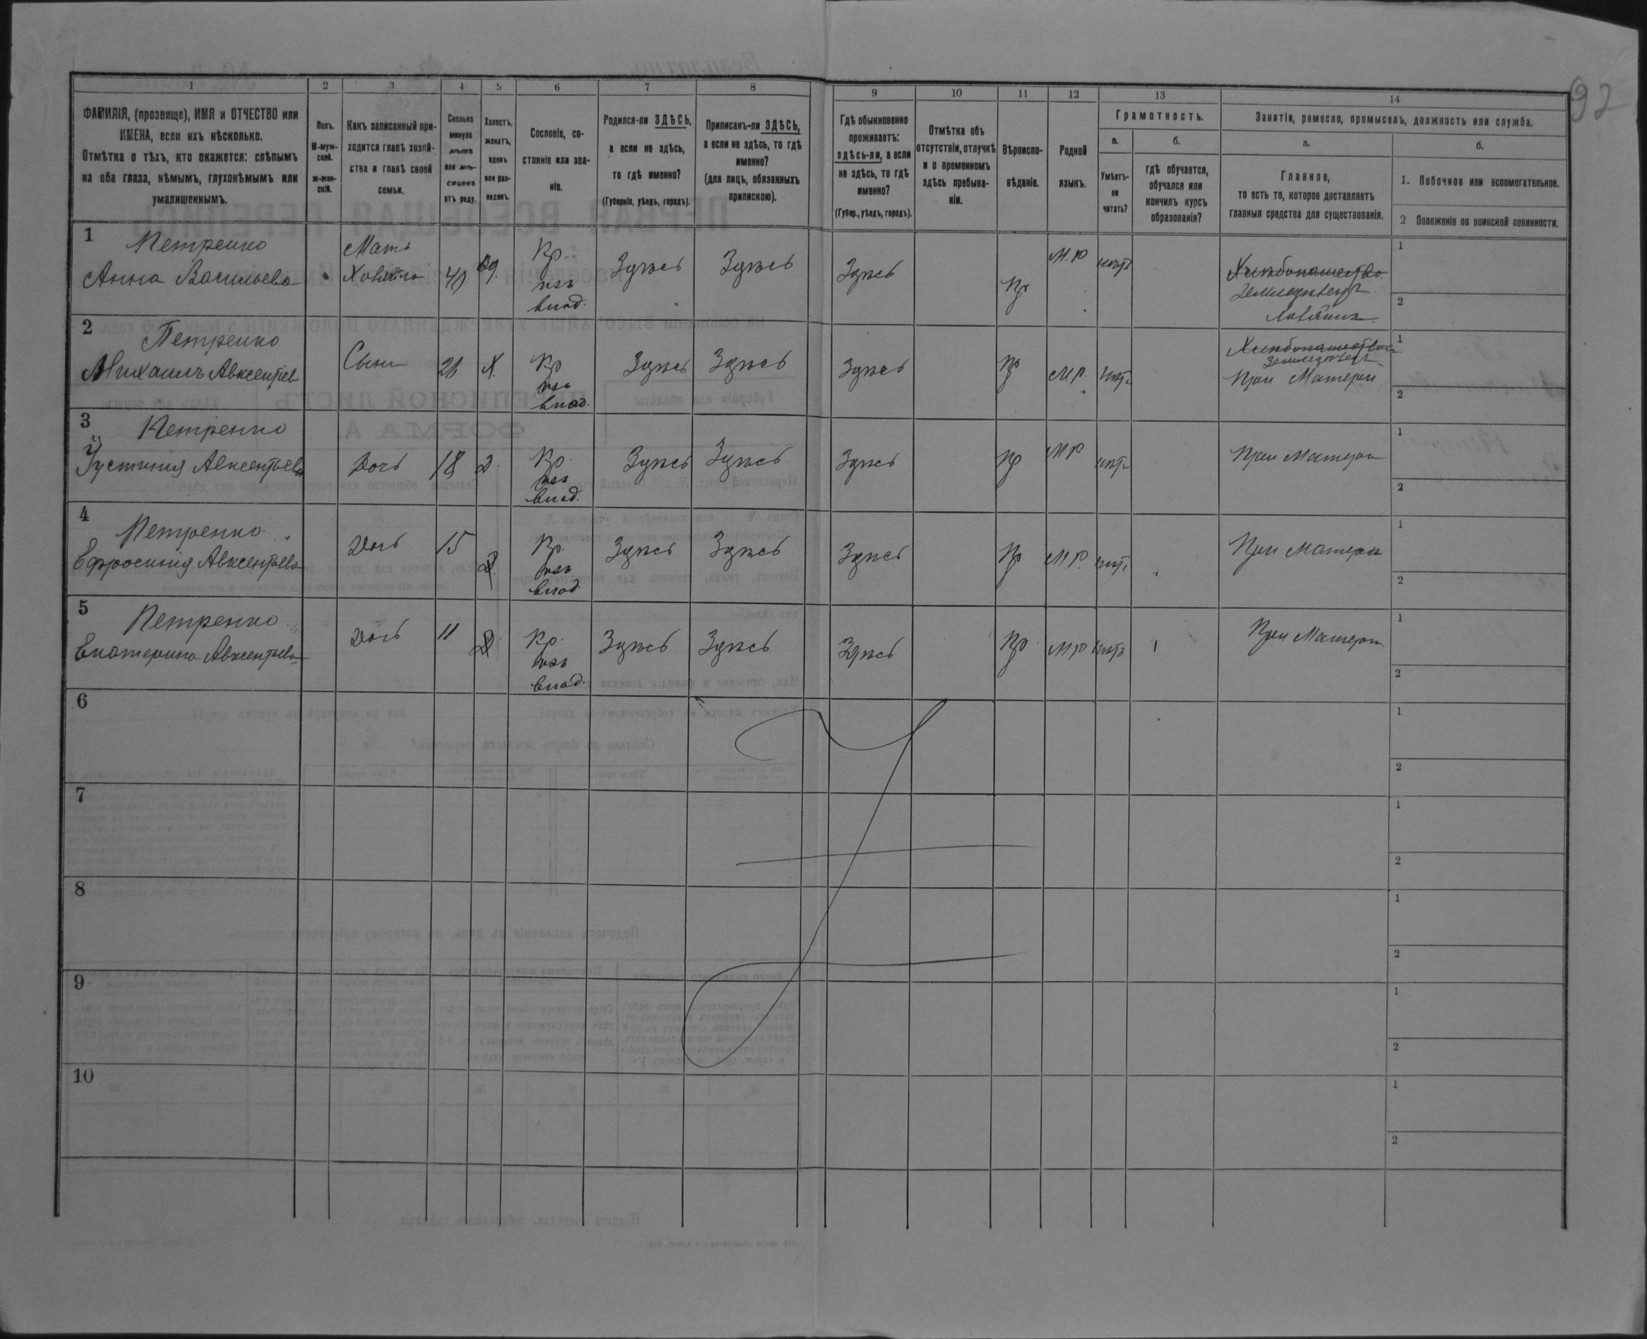 92
1 2 3 4 5 6 7 8 9 10 11 12 13 14
ФАМИЛІЯ, (прозвище), ИМЯ и ОТЧЕСТВО или
ИМЕНА, если ихъ нѣсколько.
Отмѣтка о тѣхъ, кто окажется: слѣпымъ
на оба глаза, нѣмымъ, глухонѣмымъ или
умалишеннымъ.
Полъ.
М-муж-
ской.
ж-жен-
скій.
Какъ записанный при-
ходится главѣ хозяй-
ства и главѣ своей
семьи.
Сколько
минуло
лѣтъ
или мѣ-
сяцевъ
отъ роду.
Холостъ,
женатъ,
вдовъ
или раз-
веденъ.
Сословіе, со-
стояніе или зва-
ніе.
Родился-ли ЗДѢСЬ,
а если не здѣсь,
то гдѣ именно?
(Губернія, уѣздъ, городъ).
Приписанъ-ли ЗДѢСЬ,
а если не здѣсь, то гдѣ
именно?
(для лицъ, обязанныхъ
припискою).
Гдѣ обыкновенно
проживаетъ:
здѣсь-ли, а если
не здѣсь, то гдѣ
именно?
(Губер., уѣздъ, городъ).
Отмѣтка объ
отсутствіи, отлучкѣ
и о временномъ
здѣсь пребыва-
ніи.
Вѣроиспо-
вѣданіе.
Родной
языкъ.
Грамотность.
а.
Умѣетъ-
ли
читать?
б.
гдѣ обучается,
обучался или
кончилъ курсъ
образованія?
Занятіе, ремесло, промыселъ, должность или служба.
а.
Главное,
то есть то, которое доставляетъ
главныя средства для существованія.
б.
1. Побочное или вспомогательное.
2 Положеніе по воинской повинности.
1
Петренко
Анна Васильева
Мать
40
Кр
изъ
влад.
Здѣсь
Здѣсь
Здѣсь
Пр
М.Р
нѣтъ
Хлѣбопашество
1
2
2
Петренко
Михаилъ Авксентіев
Сынъ
Х.
Кр
изъ
влад.
Здѣсь
Здѣсь
Здѣсь
Пр
М.Р.
нѣтъ
Хлѣбопашество
При Матери
1
2
3
Петренко
Іустинія Авксентьева
Дочь
18
Д.
Кр
изъ
влад.
Здѣсь
Здѣсь
Здѣсь
Пр
М.Р
нѣтъ
При Матери
1
2
4
Петренко
Ефросинія Авксентьева
Дочь
15
Д
Кр
изъ
влад
Здѣсь
Здѣсь
Здѣсь
Пр
М.Р.
нѣтъ
При Матери
1
2
5
Петренко
Екатерина Авксентьева
Дочь
11
Д
Кр.
изъ
влад.
Здѣсь
Здѣсь
Здѣсь
Пр
М.Р
нѣтъ
При Матери
1
2
6
1
2
7
1
2
8
1
2
9
1
2
10
1
2